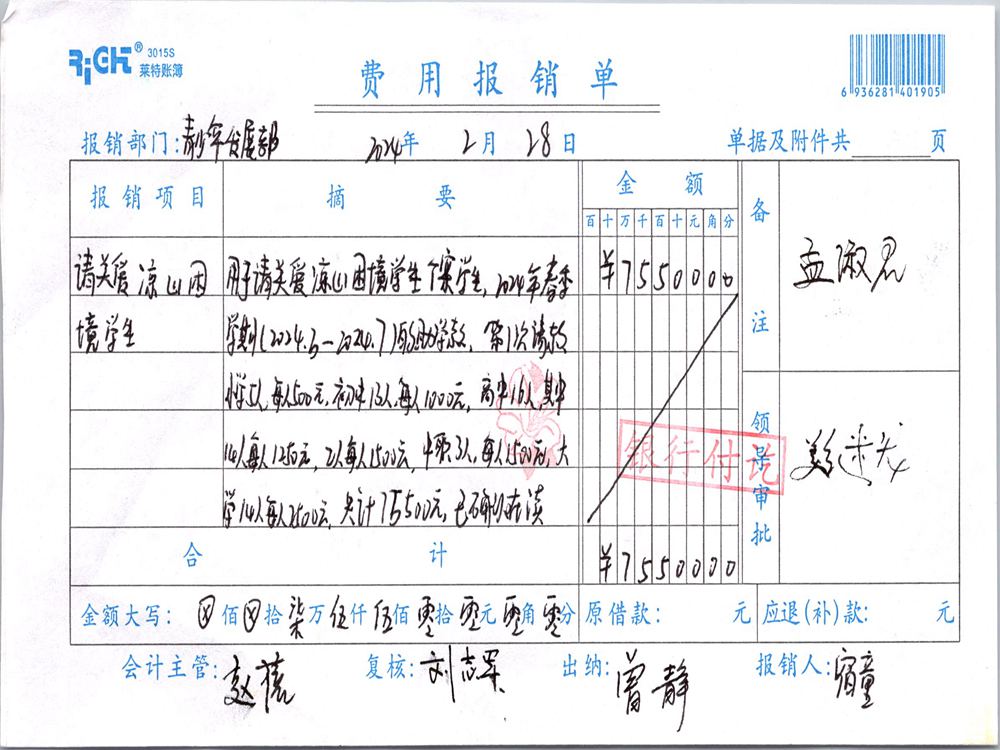 RiGHT® 3015S
莱特账簿
费用报销单
6 936281 401905
报销部门:青少年发展部 2024年 2月 28日 单据及附件共 页
报销项目 摘要 金额 备注
百十万千百十元角分
请关爱凉山困境学生
用于请关爱凉山困境学生个案学生,2024年春季
学期(2024.3-2024.7)的助学款,第1次请款
小学5人,每人500元,初中13人,每人1000元,高中16人,其中
14人每人1250元,2人每人1500元,中职3人,每人1500元,大
学14人每人2500元,共计75500元,已确认在读
¥7550000
孟淑君
银行付讫
领导审批
合计 ¥7550000
金额大写: ⊗佰⊗拾柒万伍仟伍佰零拾零元零角零分 原借款: 元 应退(补)款: 元
会计主管: 复核:刘志军 出纳:曾静 报销人:宿童